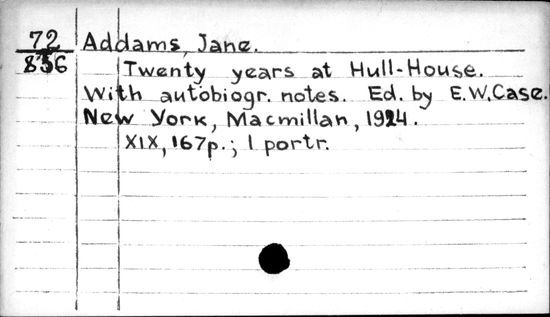 72
836
Addams, Jane.
Twenty years at Hull-House.
With autobiogr. notes. Ed. by E.W.Case.
New York, Macmillan, 1924.
XIX, 167p.; 1 portr.